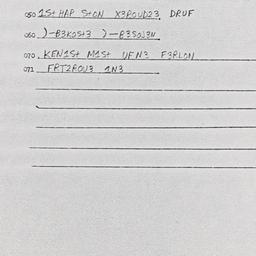 050 1St HAP StON X3ROUD23 DRUF
060 )-B3KOSt3 )-B3SOJ3N
070. KEN1St M1St UFN3 F3RLON
071 FRT2ROU3 1N3